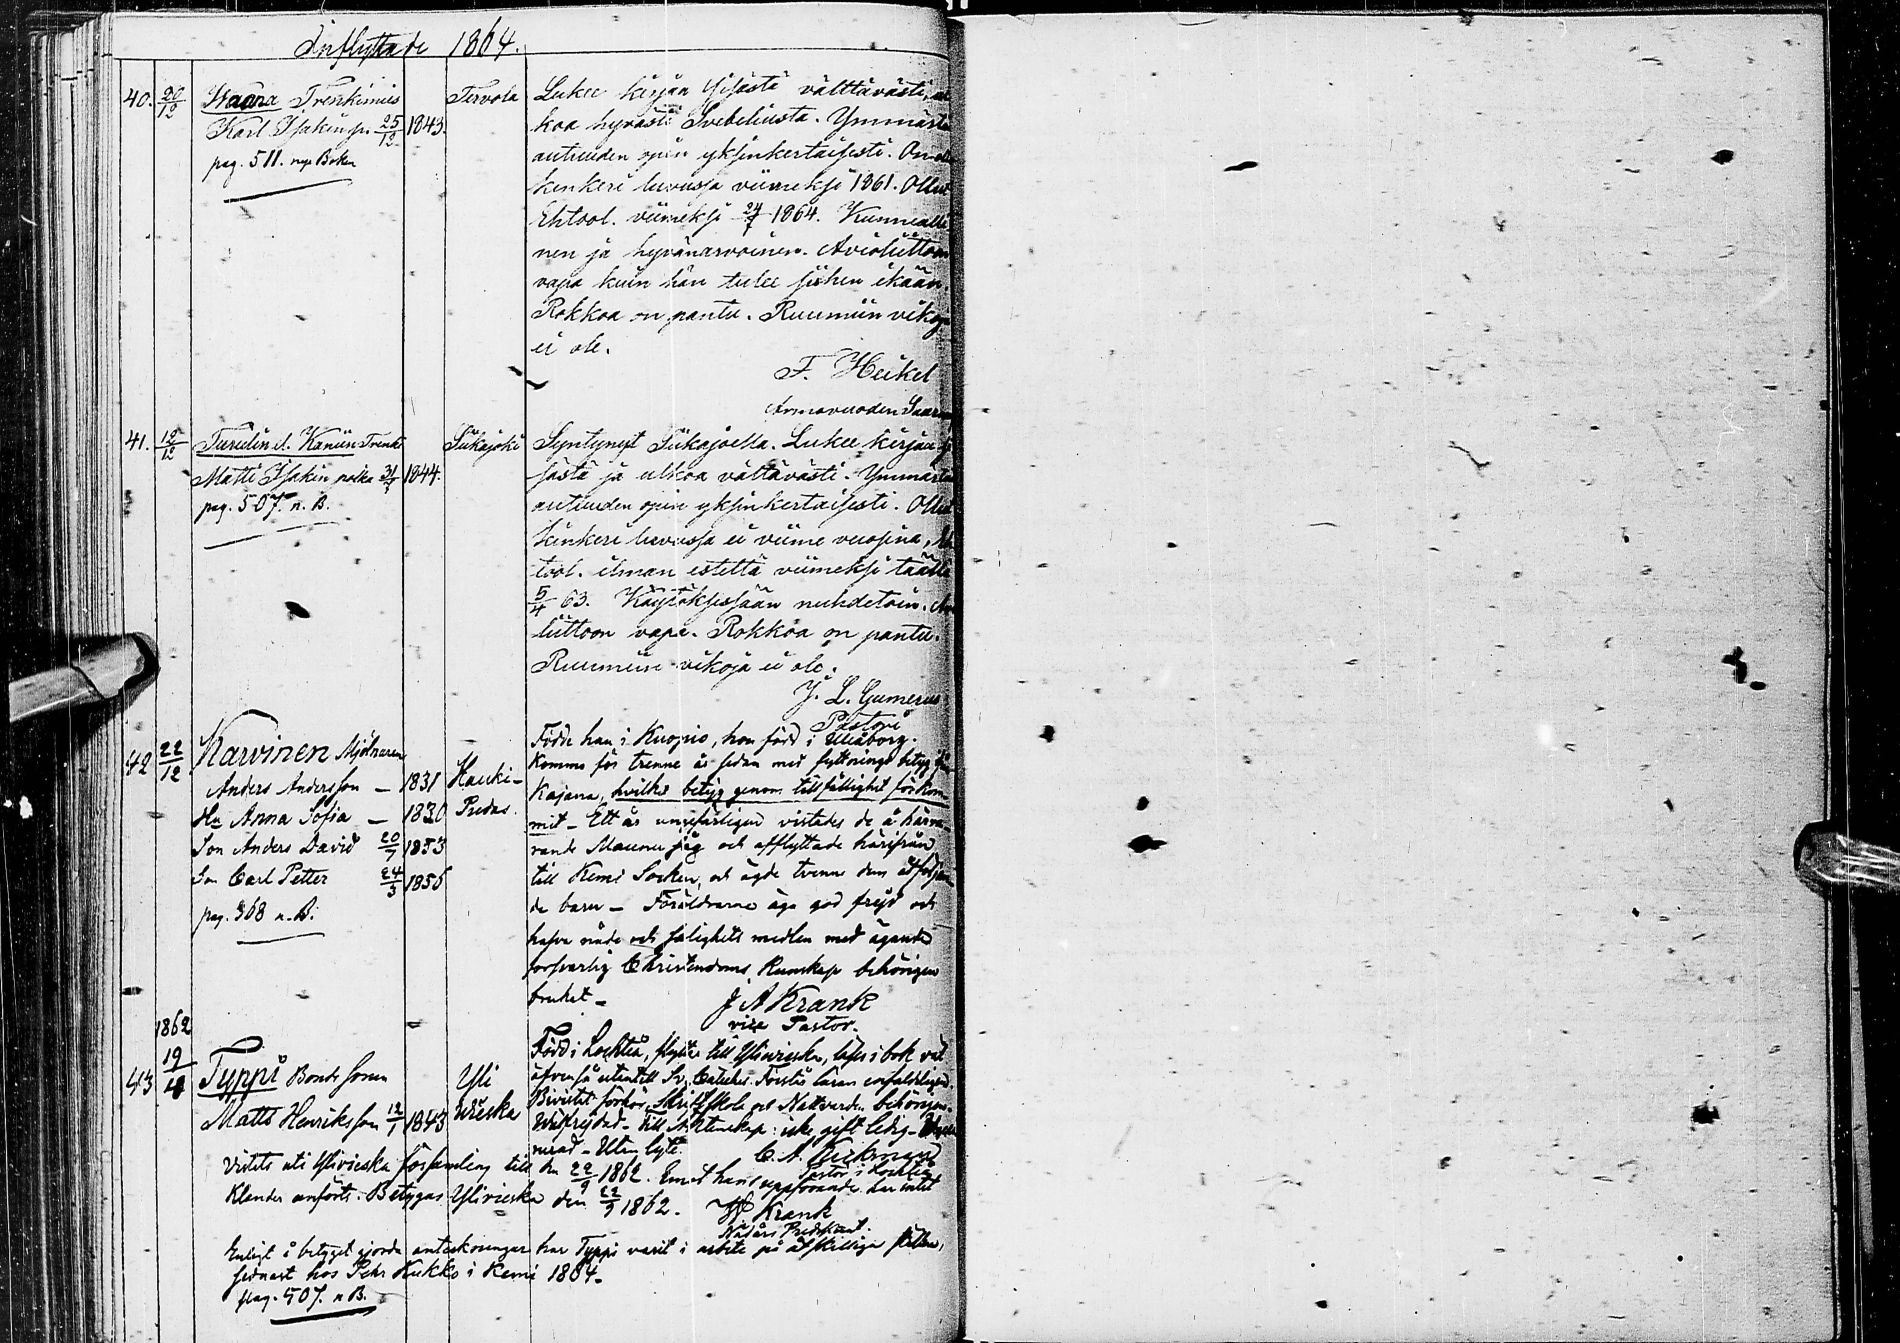 Inflyttade 1864.
40. 20/12 Waara Trenkimies Tervola
Karl Isakinp. 25/12 1843.
pag. 511. nya Boken
Lukee kirjaa sisästä välttävästi,
koa hyvästi Svebeliusta. Ymmärtä
autuuden opin yksinkertaisesti. On
kinkeri luvussa viimeksi 1861. Ollut
Ehtool. viimeksi 24/7 1864. Kunnealli
nen ja hyvänarvoinen. Avioliittoon
vapa kuin hän tulee siihen ikään.
Rokkoa on pantu. Ruumiin vikoja
ei ole.
F. Heikel
Armovuoden Saarn
41. 12/12 Turulin el. Kaniin Trenki Siikajoki
Matti Isakin poika 31/7 1844.
pag. 507. n. B.
Syntynyt Siikajoella. Lukee kirjaa si
sästä ja ulkoa vältävästi. Ymmärtä
autuuden opin yksinkertaisesti. Ollut
Kinkeri luvussa ei viime vuosina, Eh
tool. ilman estettä viimeksi täällä
5/4 63. Käytöksessään nuhdetoin. Avi
liittoon vapa. Rokkoa on pantu.
Ruumiin vikoja ei ole.
J. L. Gumerus
Pastori
42 22/12 Karvinen Mjölnaren
Anders Andersson – 1831 Hauki-
Hu Anna Sofia – 1830 Pudas.
Son Anders David 20/7 1853
Son Carl Petter 24/3 1856
pag. 368 n. B.
Födde han i Kuopio, hon född i Uleåborg.
Komme för trenne år sedan med flyttnings betyg från
Kajana, hvilka betyg genom tillfällighet förkom-
mit – Ett år ungefärligen vistades de å härva-
rande Maunu såg och afflyttade härifrån
till Kemi Socken, och ägde tvenne dem åtföljan-
de barn – Föräldrarne äga god frejd och
hafva nåde och salighets medlen med ägande
försvarlig Christendoms Kunskap behörigen
brukat –
J A Krank
vice Pastor.
1862
43 19/4 Typpi Bonde Sonen Yli
Matts Henriksson 12/1 1843 Wieska
Född i Lochteå, flyttar till Ylivieska, läser i bok väl
äfvenså utantill Sv. Catches. Förstår läran enfaldeligen.
Bivistat förhör, Skriftskola och Nattvarden behörigen.
Wälfrejdad – Till Äktenskap: icke gift ledig –
nerad – Utan lyte.
Pastor i Lochteå
Vistats uti Ylivieska församling till den 22/9 1862. Emot hans uppförande har intet
Klander anförts. Betygas Ylivieska den 22/9 1862.
Krank
Nådårs Predikant.
Enligt å betyget gjorda anteckningar har Typpi varit i arbete på åtskilliga ställen,
sednast hos Pehr Kukko i Kemi 1864.
pag. 507. n B.